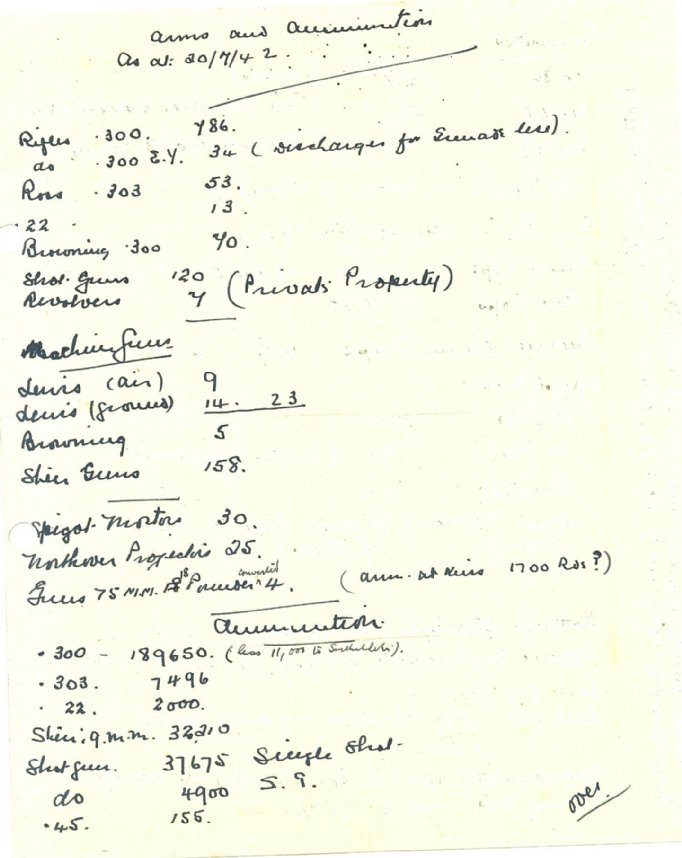 Arms and Ammunition
As at: 20/7/42.
Rifles .300. 786.
do .300 E.Y. 34 (Discharges for Grenade use).
Ross .303 53.
.22 13.
Browning .300 40.
Shot-Guns 120
Revolvers 7 (Private Property)
Machine Guns
Lewis (air) 9
Lewis (ground) 14. 23
Browning 5
Sten Guns 158.
Spigot-Mortors 30.
Northover Projectors 25.
converted
Guns 75 M.M. 18 Pounder 4. (amm. at 1700 Rds?)
Ammunition.
.300 - 189650. (less 11,000 to).
.303. 7496
.22. 2000.
Sten: 9.m.m. 32210
Shot gun. 37675 Single Shot-
do 4900 S.G.
.45. 155.
over.